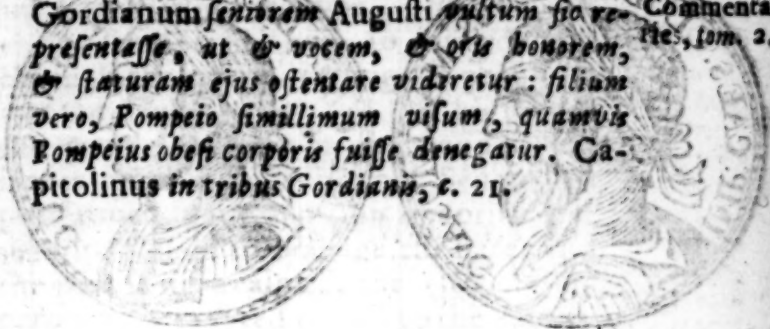 Gordianum ſeniorem Auguſti vultum ſic re-
præſentaſſe, ut & vocem, & oris honorem,
& ſtaturam ejus oſtentare videretur : filium
vero, Pompeio ſimillimum viſum, quamvis
Pompeius obeſi corporis fuiſſe denegatur. Ca-
pitolinus in tribus Gordianis, c. 21.
Commenta-
ries, tom. 2.